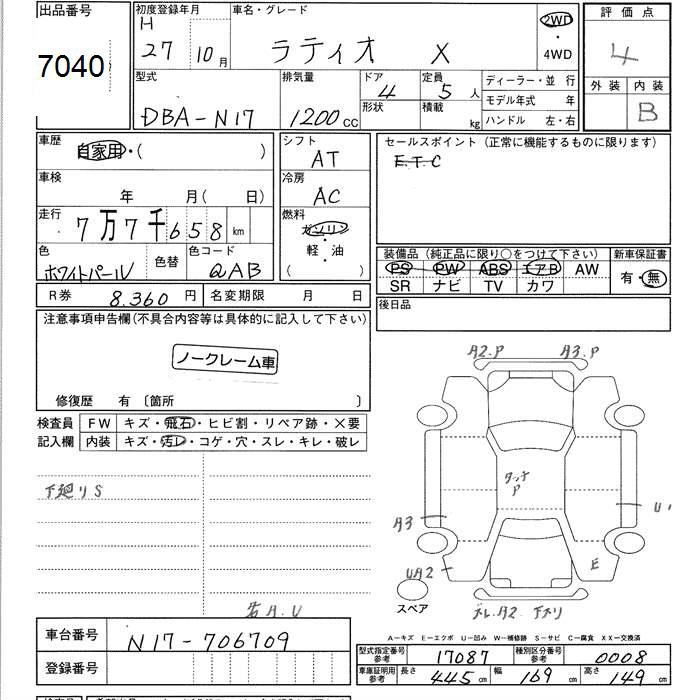 出品番号
7040
初度登録年月
H
27 10月
車名・グレード
ラティオ X
2WD
・
4WD
評価点
4
外装 内装
B
型式
DBA-N17
排気量
1200cc
ドア
4
形状
定員
5人
積載
kg
ディーラー・並 行
モデル年式 年
ハンドル 左・右
車歴
自家用・( )
車検
年 月( 日)
走行
7万7千658km
色
ホワイトパール
色替
色コード
QAB
シフト
AT
冷房
AC
燃料
ガソリン
・
軽・油
( )
セールスポイント (正常に機能するものに限ります)
E.T.C
装備品 (純正品に限り○をつけて下さい)
PS PW ABS エアB AW
SR ナビ TV カワ
新車保証書
有・無
R券 8.360円
名変期限 月 日
後日品
注意事項申告欄(不具合内容等は具体的に記入して下さい)
ノークレーム車
修復歴 有 〔箇所 〕
検査員
記入欄
FW キズ・飛石・ヒビ割・リペア跡・×要
内装 キズ・汚レ・コゲ・穴・スレ・キレ・破レ
下廻りS
A2.P A3.P
タッチ
P
A3
U
UA2
E
スペア
A2
A.U
A-キズ E-エクボ U-凹み W-補修跡 S-サビ C-腐食 XX-交換済
車台番号
N17-706709
登録番号
型式指定番号
参考
17087
種別区分番号
参考
0008
車庫証明用
参考
長さ 445cm
幅 169cm
高さ 149cm